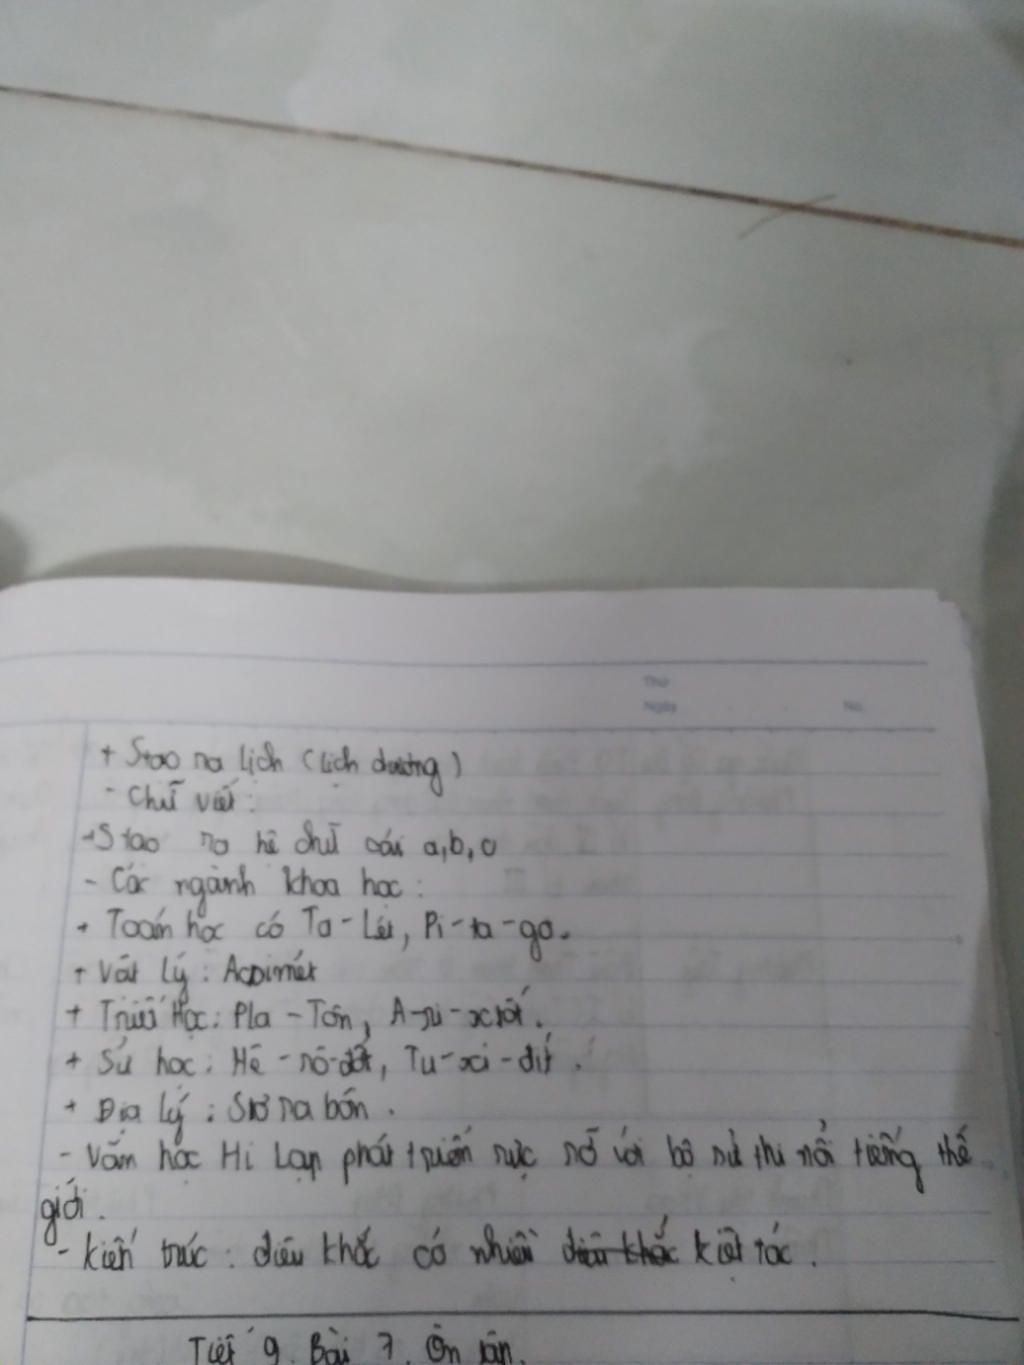 Thứ
Ngày No.
+ Stạo ra lịch (lịch dương)
- Chữ viết:
+ Stạo ra hệ chữ cái a, b, c
- Các ngành khoa học:
+ Toán học có Ta-Lét, Pi-ta-go.
+ Vật Lý: Acsimét
+ Triết Học: Pla-Tôn, A-ri-xtốt.
+ Sử học: Hê-rô-đốt, Tu-xi-đít.
+ Địa lý: Stơ ra bôn.
- Văn học Hi Lạp phát triển rực rỡ với bộ sử thi nổi tiếng thế
giới.
- Kiến trúc: điêu khắc có nhiều điêu khắc kiệt tác.
Tiết 9. Bài 7. Ôn tập.